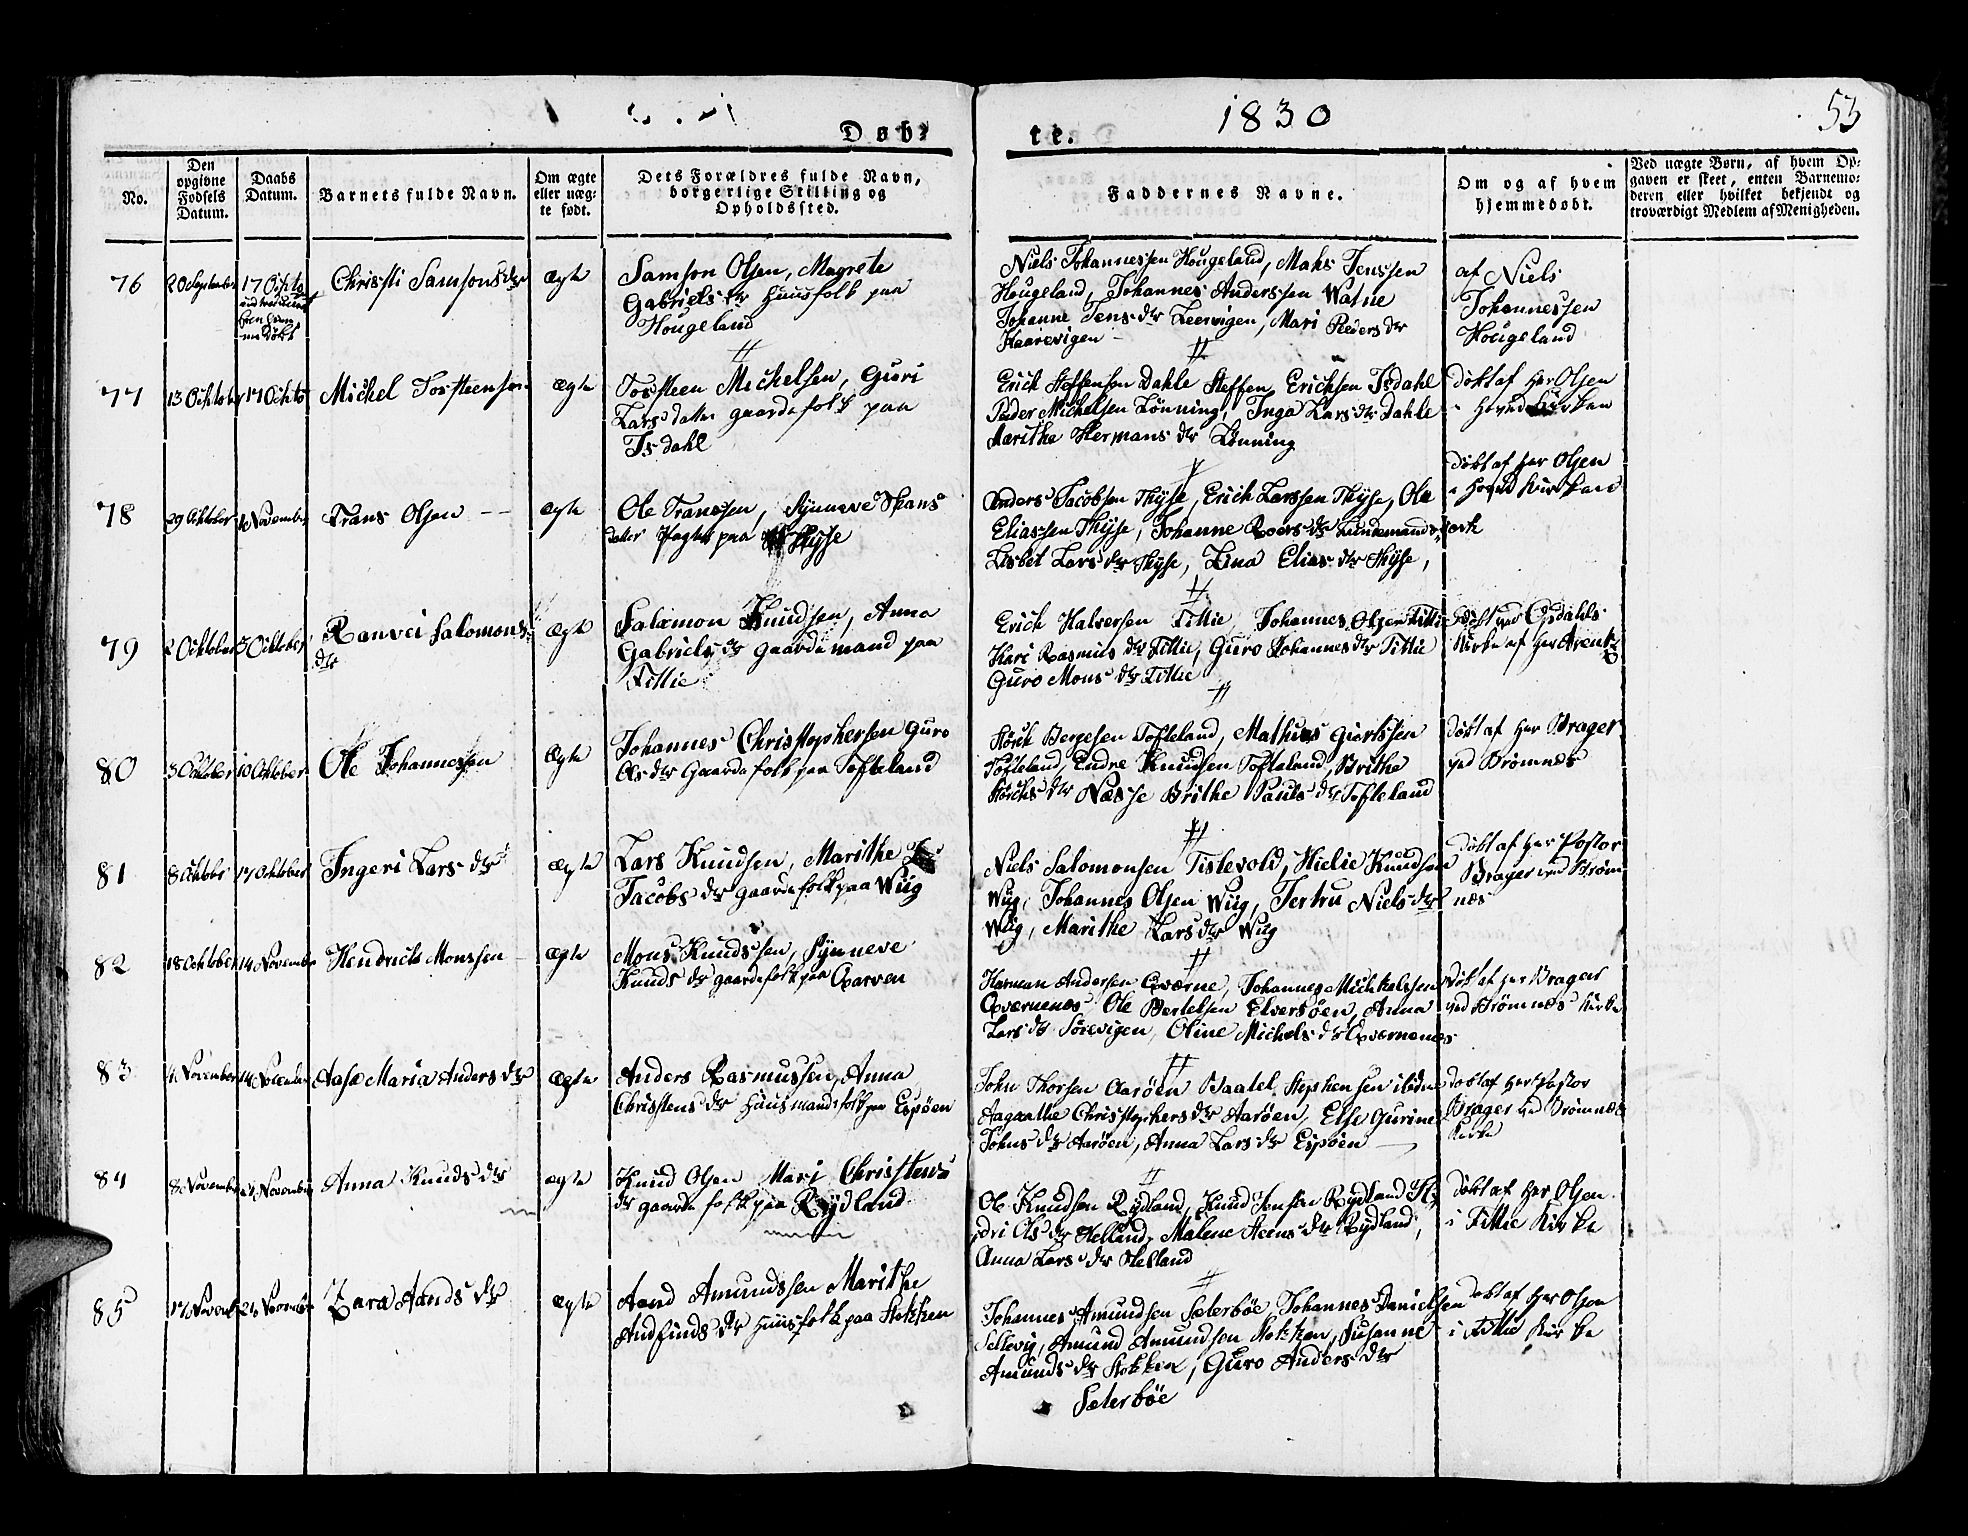 Døb-
te.
1830
53
No.
Den
opgivne
Fødsels
Datum.
Daabs
Datum.
Barnets fulde Navn.
Om ægte
eller uæg-
te født.
Dets Forældres fulde Navn,
borgerlige Stilling og
Opholdssted.
Faddernes Navne.
Om og af hvem
hjemmedøbt.
Ved uægte Børn, af hvem Op-
gaven er skeet, enten Barnemo-
deren eller hvilket bekjendt og
troværdigt Medlem af Menigheden.
76
20 September
17 Octo
døbt
Christi Samsons dr
ægte
Samson Olsen, Magrete
Gabriels dr Huusfolk paa
Hougeland
Niels Johannessen Hougeland, Mahs Jenssen
Hougeland, Johannes Anderssen Watne
Johanne Jens dr Leervigen, Mari Peders dr
Kaarevigen
af Niels
Johannessen
Hougeland
77
13 Octobr
17 Octo
Michel Tosteensen
ægte
Tosteen Michelsen, Guri
Lars datter gaardsfolk paa
Isdahl
Erich Steffenson Dahle Steffen Erichsen Isdahl
Peder Michelsen Lønning, Inga Lars dr Dahle
Marithe Hermans dr Lønning
døbt af Her Olsen
i Hoved Kirken
78
29 Oktober
November
Frans Olsen
ægte
Ole Franssen, Synneve Spans
datter paa Thyse
Anders Jacobsen Thyse, Erich Larssen Thyse, Ole
Eliassen Thyse, Johanne Roars dr Lundemands
Lisbet Lars dr Thyse, Lina Elias dr Thyse,
døbt af Her Olsen
i Hoved Kirken
79
2 Oktober
3 Oktober
Ranvei Salomons
dr
ægte
Salamon Knudsen, Anna
Gabriels dr gaardemand paa
Fittie
Erich Halversen Fittie, Johannes Olsen Fittie
Kari Rasmus dr Fittie, Guro Johannes dr Fittie
Guro Mons dr Fittie
døbt ved Opdahls
Kirke af Her Arentz
80
3 Oktober
10 Oktober
Ole Johannessen
ægte
Johannes Christophersen Guro
Ols dr Gaardsfolk paa Tofteland
Størck Bergesen Tofteland, Mathias Giertssen
Tofteland, Endre Knudsen Tofteland, Brithe
Størchs dr Næsse Brithe Pauls dr Tofteland
døbt af Her Brager
ved Brømnes
81
8 Oktobr
17 Oktober
Ingeri Lars dr
ægte
Lars Knudsen, Marithe
Jacobs dr gaardsfolk paa Wiig
Niels Salomonsen Tislevold, Hielie Knudsen
Wiig, Johannes Olsen Wiig, Jertru Niels dr
Wiig, Marithe Lars dr Wiig
døbt af Her Pastor
Brager ved Brøm
næs
82
18 Oktober
14 November
Hendrick Monssen
ægte
Mons Knudssen, Synneve
Knuds dr gaardsfolk paa Qvarven
Herman Andersen Qværne, Johannes Michkelssen
Qværnenes Ole Bertelsen Elversøen, Anna
Lars dr Sørevigen, Oline Michels dr Qværnenes
døbt af Her Brager
ved Brømnæs Kirke
83
November
14 November
Aase Maria Anders dr
ægte
Anders Rasmussen, Anna
Christens dr Huusmandsfolk paa Espøen
John Thorsen Aarøen Baatel Stephensen
Aagaathe Christophers dr Aarøen, Else Gurine
Johns dr Aarøen, Anna Lars dr Espøen
døbt af Her Pastor
Brager ved Brømnæs
Kirke
84
8 November
21 November
Anna Knuds dr
ægte
Knud Olsen Mari Christens
dr gaardsfolk paa Rydland
Ole Knudsen Rydland, Knud Jonsen Rydland
Ols dr Helland, Malene Steens dr Rydland,
Anna Lars dr Helland
døbt af Her Olsen
i Fittie Kirke
85
17 Novemb
21 November
Zara Aands dr
ægte
Aand Amundssen Marithe
Andfinds dr Huusfolk paa Stokken
Johannes Amundsen Sæterbøe, Johannes Danielsen
Sellevig, Amund Amundsen Stokken, Susanne
Amunds dr Stokken, Guro Anders dr
Sæterbøe
døbt af Her Olsen
i Fittie Kirke